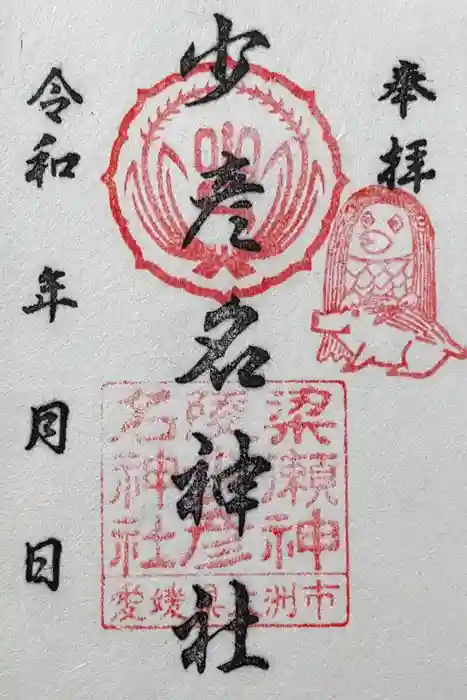 奉拝
少彦名神社
令和 年 月 日
梁瀬神
陵少彦
名神社
愛媛県大洲市